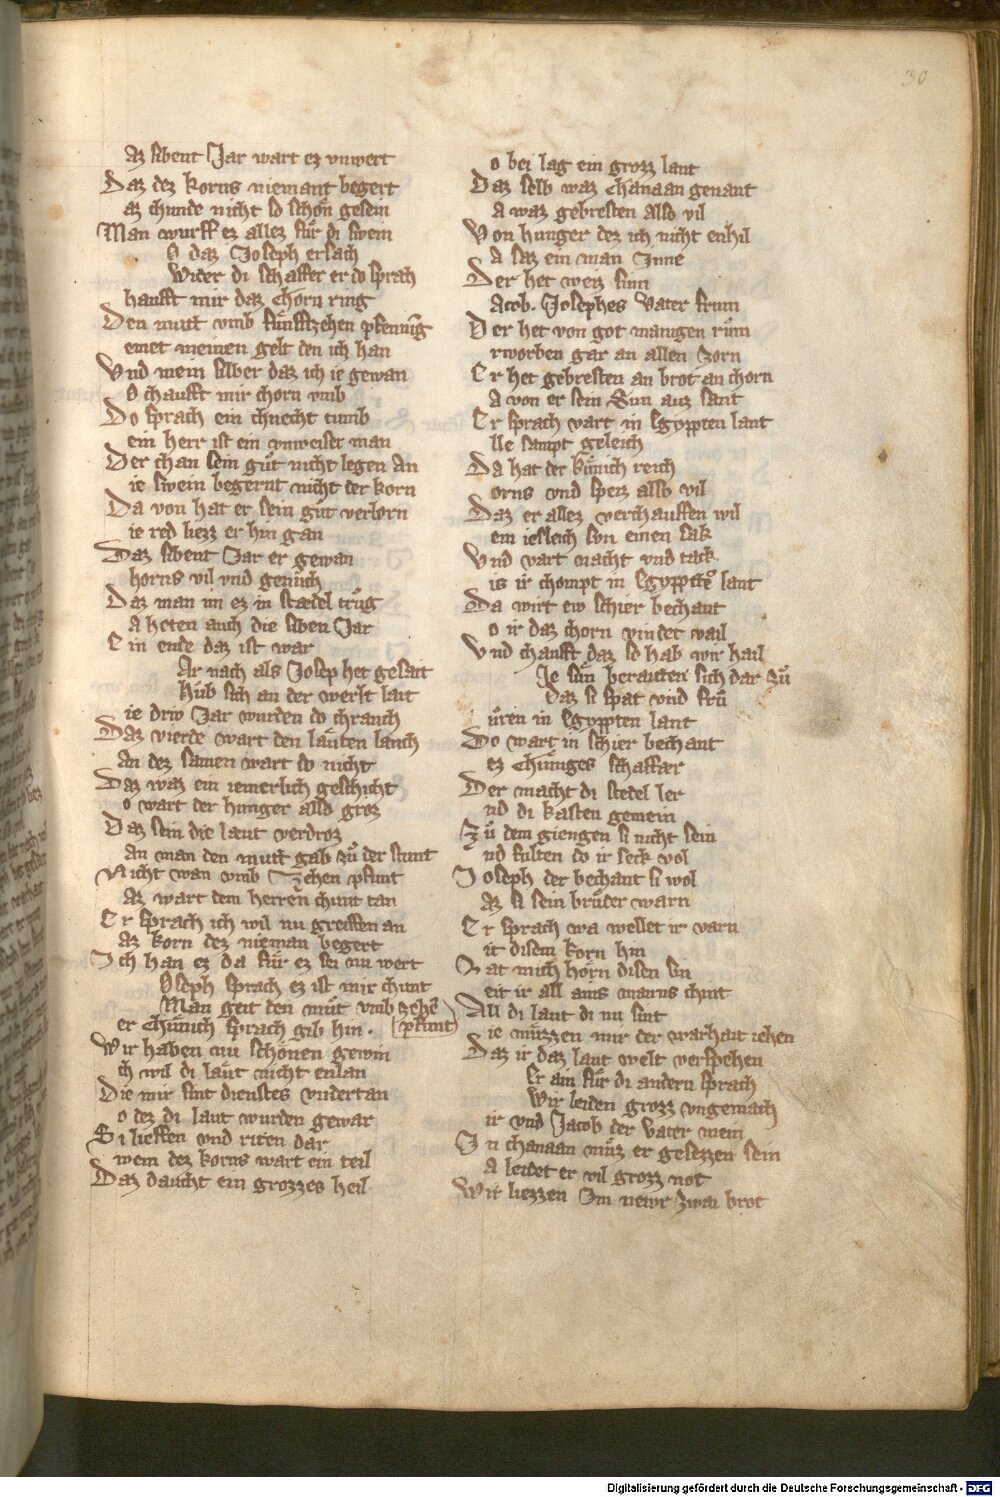 30
az sibent Jar wart ez vnwert
Daz dez korns niemant begert
az chunde nicht so schön gesein
Man wurff ez allez für di swein
o daz Joseph ersach
Wider di schaffer er do sprach
haufft mir daz chorn ring
Den mutt vmb fünfftzehen pfenning
emet meinen gelt den ich han
Vnd mein silber daz ich ie gewan
o chaufft mir chorn vmb
Do sprach ein chnecht tumb
ein herr ist ein vnweiser man
Der chan sein gůt nicht legen an
ie swein begernt nicht der korn
Da von hat er sein gůt verlorn
ie red liezz er hin gan
Daz sibent Jar er gewan
horns vil vnd genůch
Daz man im ez in stædel trůg
a heten auch die siben Jar
Ein ende daz ist war
Ar nach als Josep het gesait
Hůb sich an der werlt lait
ie driw Jar wurden do chranch
Daz vierde wart den läuten lanch
an dez samen wart do nicht
Daz waz ein iemerlich geschicht
o wart der hunger also groz
Daz sein die laut verdroz
an man den mutt gab zů der stunt
Nicht wan vmb Zehen pfunt
az wart dem herren chunt tan
Er sprach ich wil nu greiffen an
az korn dez nieman begert
Ich han ez da für ez sei nu wert
Oseph sprach ez ist mir chunt
Man geit den müt vmb zehē
pfunt
er Chünich sprach gib hin.
Wir haben nu schönen gewin
ch wil di läut nicht enlan
Die mir sint dienstes vndertan
o dez di laut wurden gewar
Si lieffen vnd riten dar
wem dez korns wart ein teil
Daz daucht ein grozzes heil
o bei lag ein grozz lant
Daz selb waz Chanaan genant
a waz gebresten also vil
Von hunger dez ich nicht enhil
a saz ein man Inne
Der het weiz sinn
acob. Josephes Vater frum
Der het von got manigen rům
rworben gar an allen zorn
Er het gebresten an brot an chorn
a von er sein Sun auz sant
Er sprach vart in Egyppten lant
lle sampt geleich
Da hat der künich reich
orns vnd speiz also vil
Daz er allez verchauffen wil
em iesleich sun einen sak
Vnd vart nacht vnd tack
is ir chompt in Egypptē lant
Da wirt ew schier bechant
o ir daz chorn vindet vail
Vnd chaufft daz so hab wir hail
Ie sün beraitten sich dar zů
Daz si spat vnd frů
ůren in Egyppten lant
Do wart in schier bechant
ez Chüniges schaffær
Der macht di stedel ler
nd di kasten gemein
Zů dem giengen si nicht sein
nd fulten do ir seck vol
Joseph der bechant si wol
az si sein brüder warn
Er sprach wa wellet ir varn
it disem korn hin
Lat mich hörn disen sin
eit ir all ains manns chint
All di laut di nu sint
ie müzzen mir der warhait iehen
Daz ir daz lant welt verspehen
Er ain für di andern sprach
Wir leiden grozz vngemach
ir vnd Jacob der Vater mein
In chanaan můz er gesezzen sein
a leidet er vil grozz not
Wir liezzen Im newr zwai brot
Digitalisierung gefördert durch die Deutsche Forschungsgemeinschaft - DFG